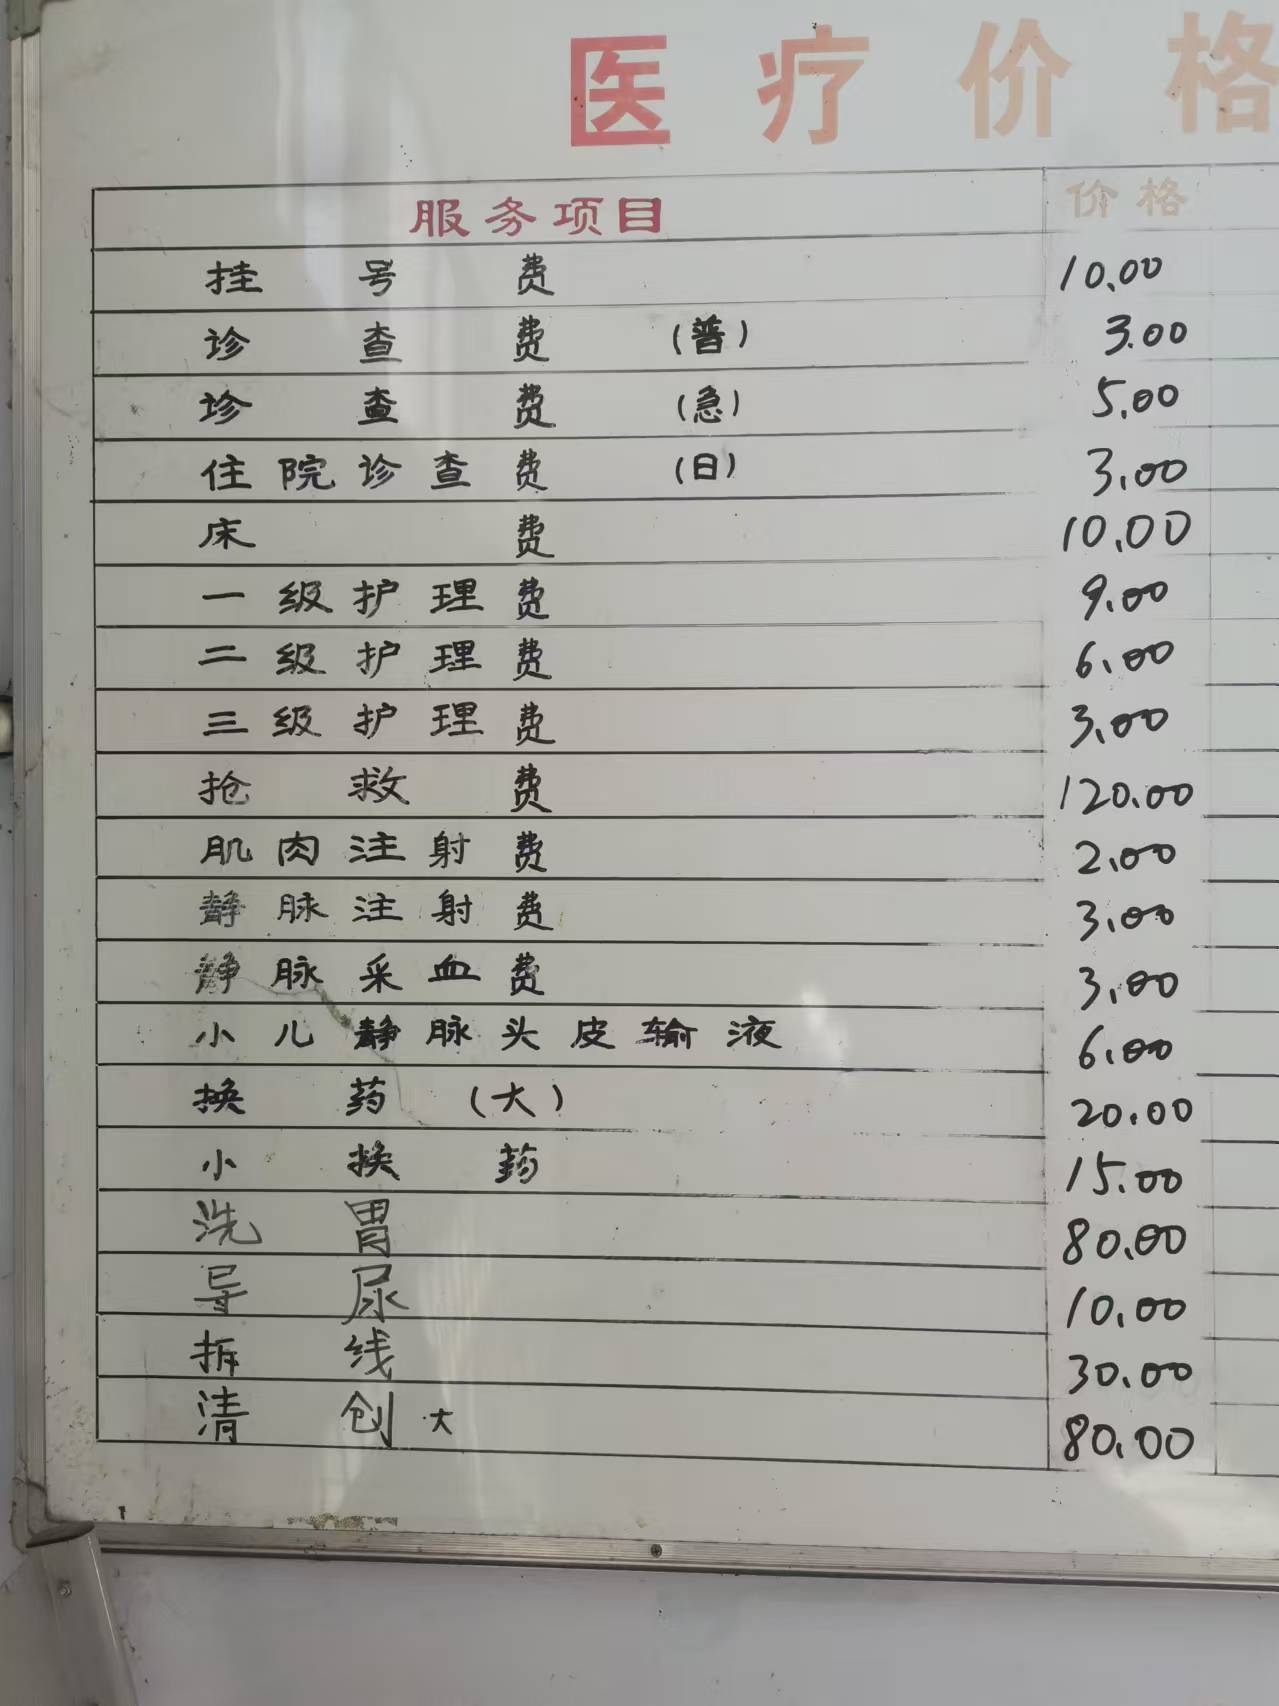 医疗价格
服务项目 价格
挂号费 10.00
诊查费（普） 3.00
诊查费（急） 5.00
住院诊查费（日） 3.00
床费 10.00
一级护理费 9.00
二级护理费 6.00
三级护理费 3.00
抢救费 120.00
肌肉注射费 2.00
静脉注射费 3.00
静脉采血费 3.00
小儿静脉头皮输液 6.00
换药（大） 20.00
小换药 15.00
洗胃 80.00
导尿 10.00
拆线 30.00
清创大 80.00